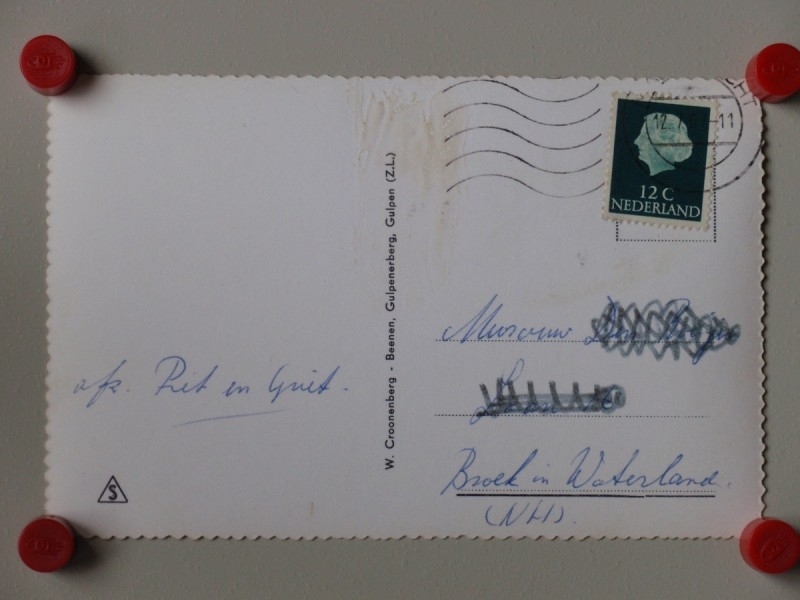 afz. Piet en Griet.
S
W. Croonenberg - Beenen, Gulpenerberg, Gulpen (Z.L.)
12 11
12 C
NEDERLAND
Mevrouw
Broek in Waterland.
(NH).